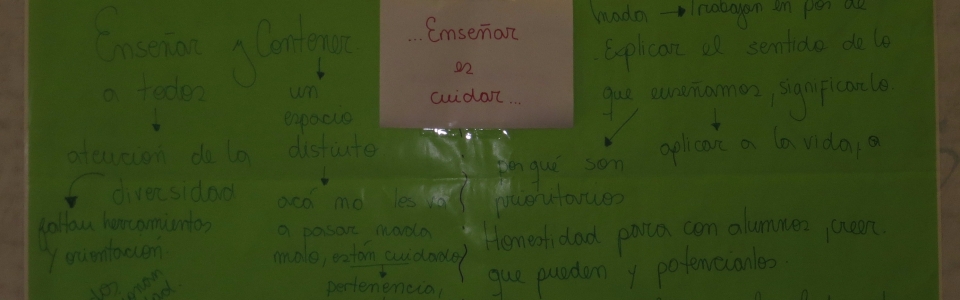 Enseñar y Contener.
a todos
atención de la
diversidad
faltan herramientas
y orientación.
un
espacio
distinto
acá no les va
a pasar nada
malo, están cuidado
pertenencia,
...Enseñar
es
cuidar...
nada → Trabajan en pos de
Explicar el sentido de lo
que enseñamos, significarlo.
por qué son
prioritarios
aplicar a la vida, a
Honestidad para con alumnos, creer
que pueden y potenciarlos.